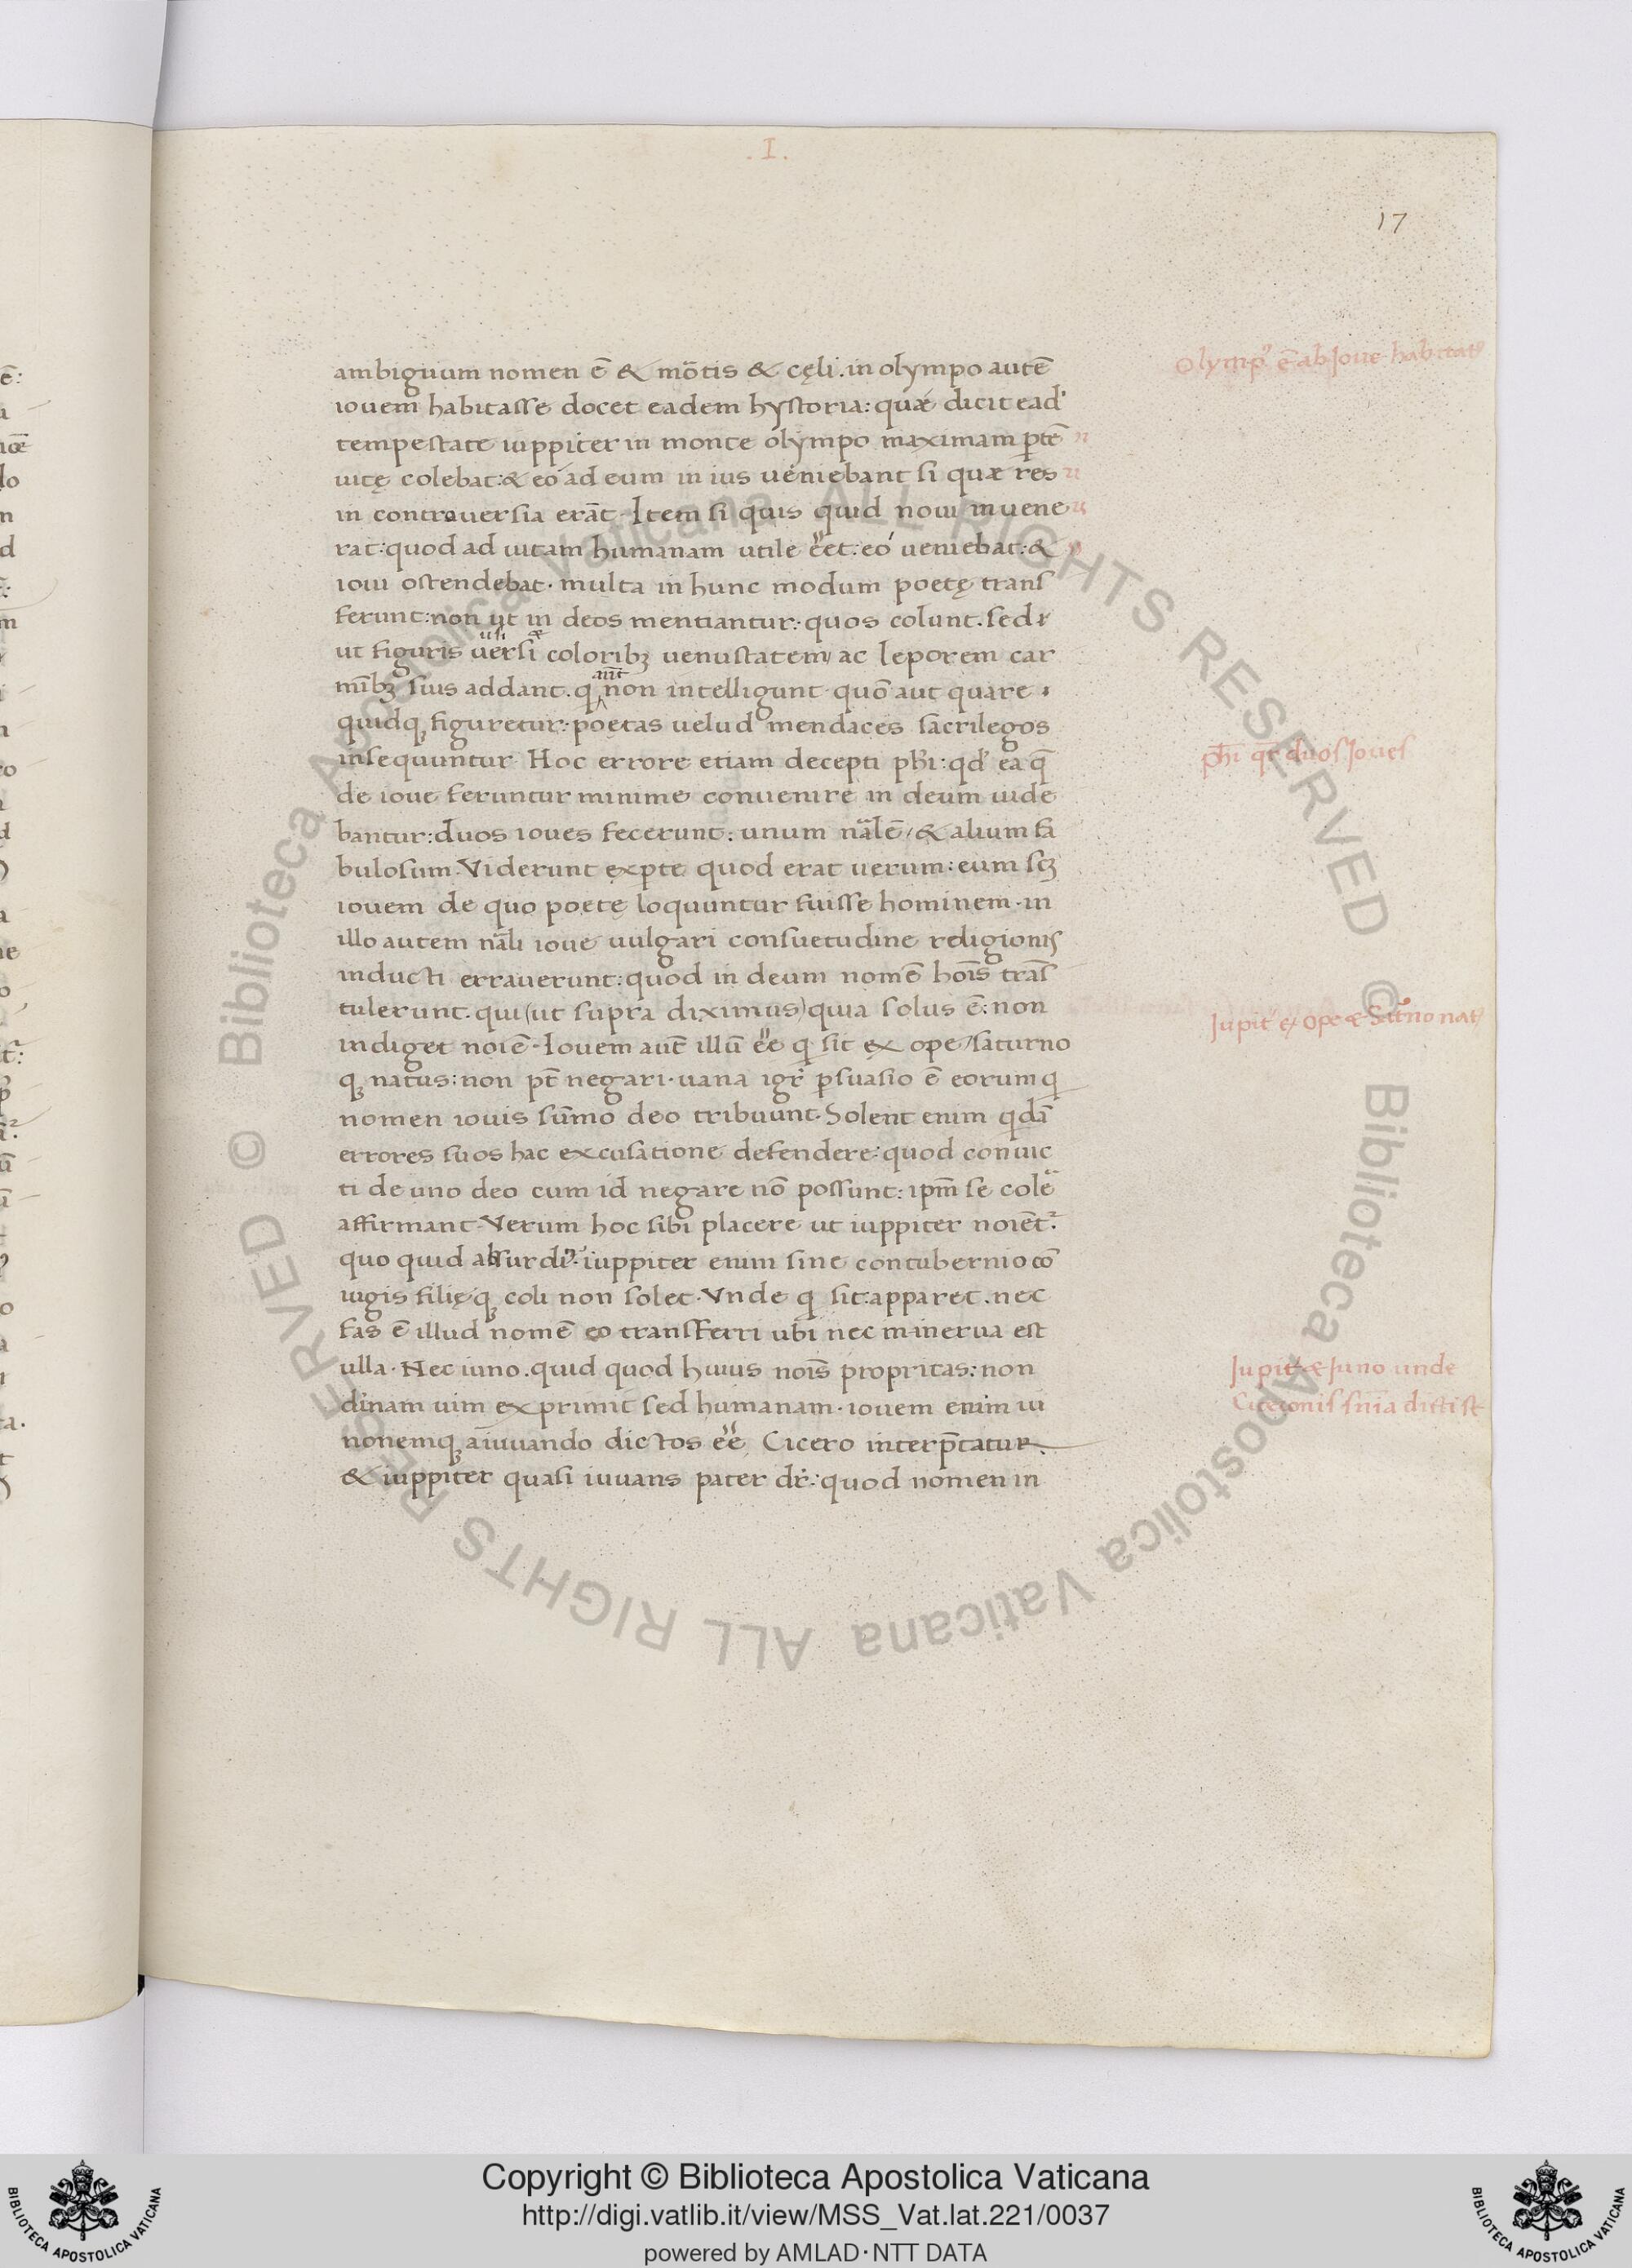 .I.
17
ambiguum nomen ē & mōtis & cęli. in olympo autē
iouem habitasse docet eadem hystoria: quæ dicit ead'
tempestate iuppiter in monte olympo maximam ꝑtē
uitę colebat: & eo ad eum in ius ueniebant si quæ res
in controuersia erāt. Item si quis quid noui inuene
rat: quod ad uitam humanam utile eēt: eó ueniebat: &
ioui ostendebat. multa in hunc modum poetę transf
ferunt: non ut in deos mentiantur: quos colunt. sed
ut figuris uersi coloribꝫ uenustatem ac leporem car
mībꝫ suis addant. q aut̄ non intelligunt quō aut quare
quidqꝫ figuretur: poetas uelud mendaces sacrilegos
insequuntur. Hoc errore etiam decepti phī: qd' ea q̄
de ioue feruntur minime conuenire in deum uide
bantur: duos ioues fecerunt: unum nālē/ & alium fa
bulosum. Viderunt ex ꝑte quod erat uerum: eum scꝫ
iouem de quo poetę loquuntur fuisse hominem. in
illo autem nāli ioue uulgari consuetudine religionis
inducti errauerunt: quod in deum nomē hoīs trāsf
tulerunt. qui (ut supra diximus) quia solus ē: non
indiget noīe. Iouem aut̄ illū eē q sit ex ope/ saturno
qꝫ natus: non pt̄ negari. uana igr̄ ꝑsuasio ē eorum q
nomen iouis sūmo deo tribuunt. Solent enim qdā
errores suos hac excusatione defendere: quod conuic
ti de uno deo cum id negare nō possunt: ipm̄ se colē
affirmant. Verum hoc sibi placere ut iuppiter noīet̄.
quo quid absurdi? iuppiter enim sine contubernio cō
iugis filięqꝫ coli non solet. Vnde q sit: apparet. nec
fas ē illud nomē eo transferri ubi nec minerua est
ulla. Nec iuno. quid quod huius noīs propritas: non
diīnam uim exprimit sed humanam. iouem enim iu
nonemqꝫ a iuuando dictos eē Cicero interp̄tatur.
& iuppiter quasi iuuans pater dr̄: quod nomen in
Olymp' ē ab Joue habitat'
phī qr̄ duos Joues
Jupit' ex ope & Sat'no nat'
Jupit' & Juno unde
Ciceronis snīa dicti st
Copyright © Biblioteca Apostolica Vaticana
http://digi.vatlib.it/view/MSS_Vat.lat.221/0037
powered by AMLAD·NTT DATA
BIBLIOTECA APOSTOLICA VATICANA
BIBLIOTECA APOSTOLICA VATICANA
© Biblioteca Apostolica Vaticana ALL RIGHTS RESERVED © Biblioteca Apostolica Vaticana ALL RIGHTS RESERVED